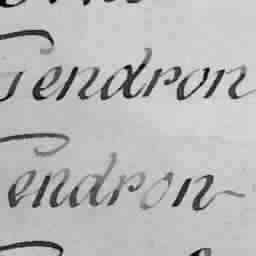 Gendron
Gendron